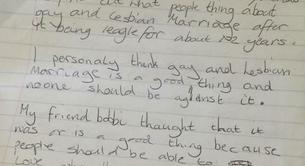 out what people thing about
gay and Lesbian Marriage after
it bang leagle for about years.
I personaly think gay and Lesbian
Marriage is a good thing and
noone should be against it.
My friend bobbi thought that it
was or is a good thing because
people should be able to
Love